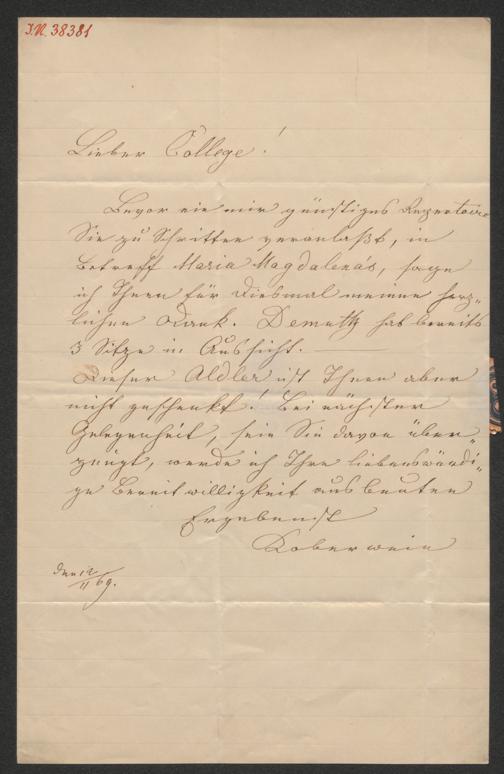 I.N. 38381
Lieber College!
Bevor ein mir günstiges Repertoire
Sie zu Schritten veranlaßt, in
Betreff Maria Magdalena's, sage
ich Ihnen für diesmal meinen herz-
lichen Dank. Demuth hat bereits
3 Sitze in Aussicht. —
Dieser Aldler ist Ihnen aber
nicht geschenkt! Bei nächster
Gelegenheit, sein Sie davon über-
zeugt, werde ich Ihre liebenswürdi-
ge Bereitwilligkeit ausbeuten
Ergebenst
Koberwein
den 12/11 69.